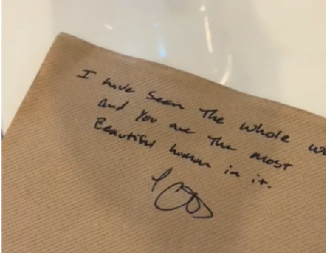 I have seen The whole
and You are The most
Beautiful human in it.